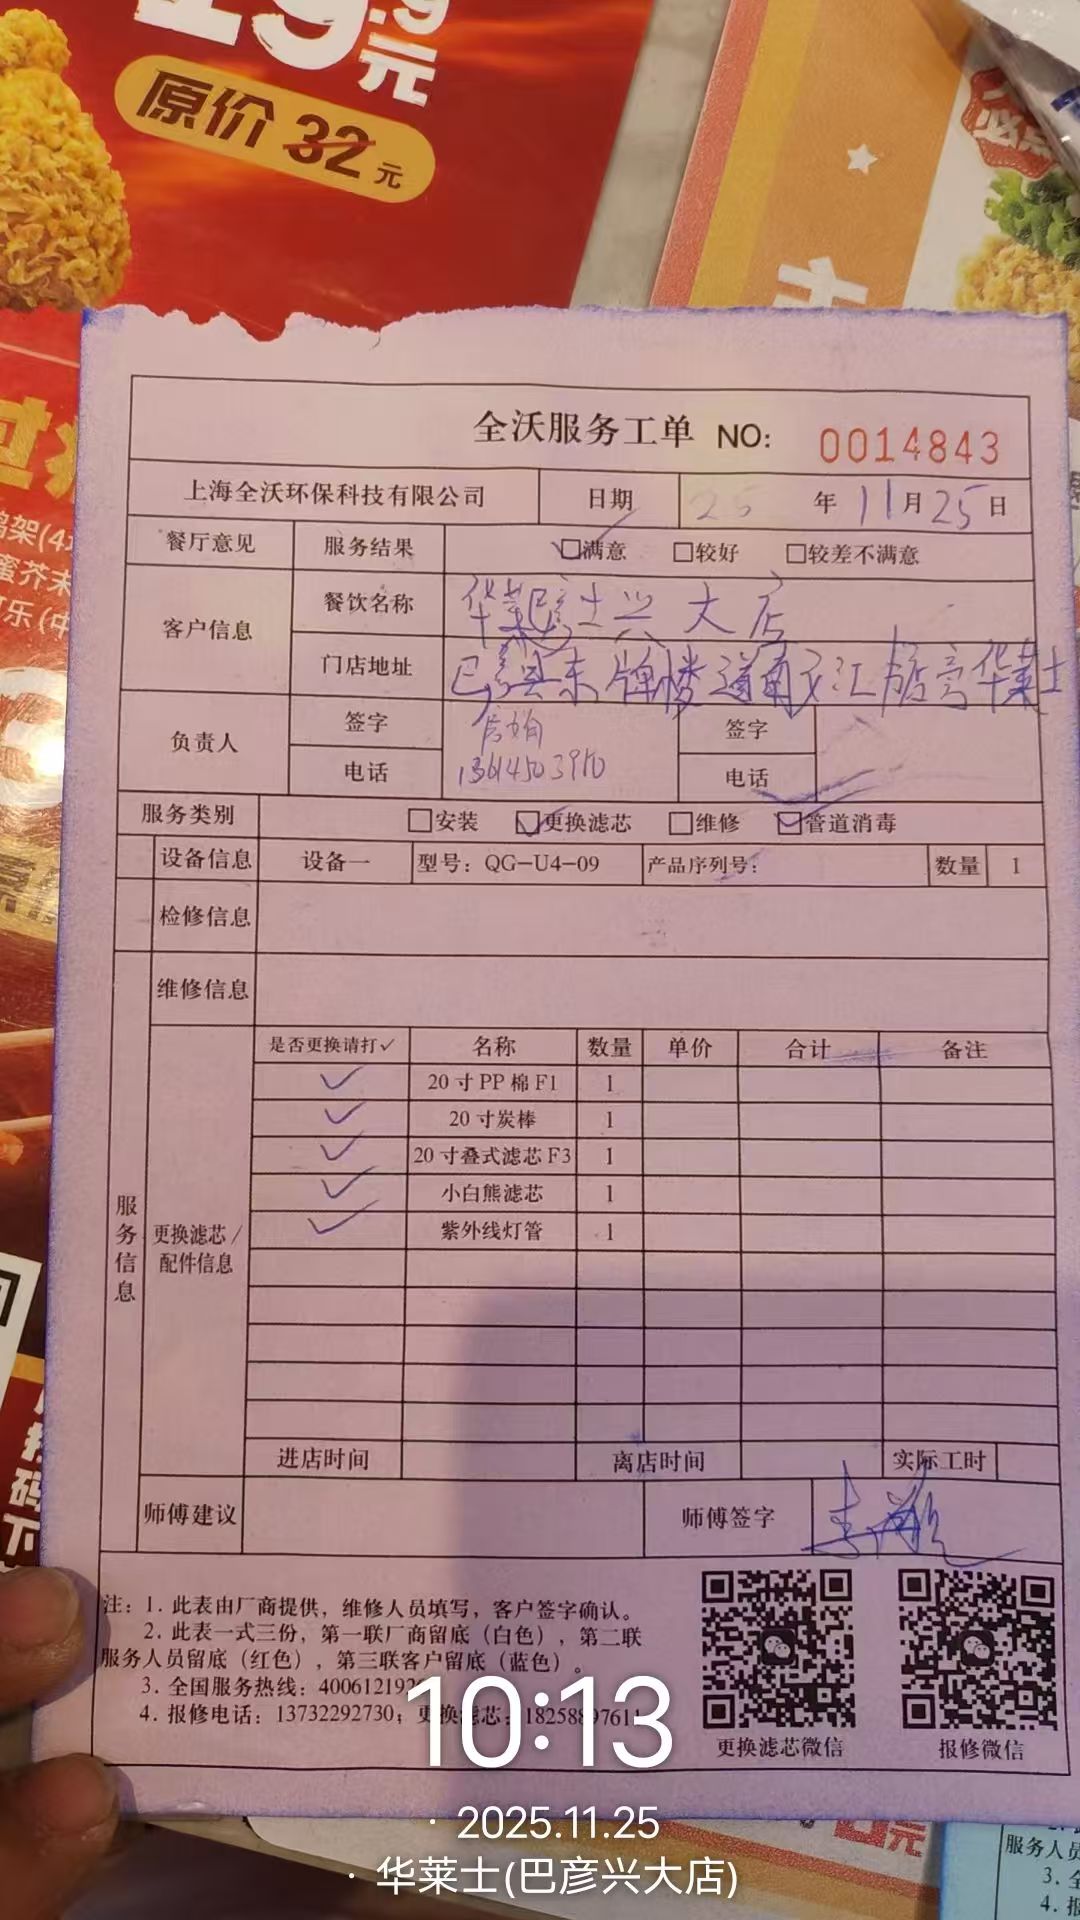 19.9
元
原价 32 元
必点
全沃服务工单 NO: 0014843
上海全沃环保科技有限公司 日期 25 年 11 月 25 日
餐厅意见 服务结果 ☑满意 □较好 □较差不满意
客户信息 餐饮名称 华莱士巴彦兴大店
门店地址 巴彦县东牌楼道南 江 店旁华莱士
负责人 签字 签字
电话 13614503910 电话
服务类别 □安装 ☑更换滤芯 □维修 ☑管道消毒
设备信息 设备一 型号：QG-U4-09 产品序列号： 数量 1
检修信息
维修信息
服务信息
更换滤芯/配件信息
是否更换请打✓ 名称 数量 单价 合计 备注
✓ 20寸PP棉F1 1
✓ 20寸炭棒 1
✓ 20寸叠式滤芯F3 1
✓ 小白熊滤芯 1
✓ 紫外线灯管 1
进店时间 离店时间 实际工时
师傅建议 师傅签字
注：1. 此表由厂商提供，维修人员填写，客户签字确认。
2. 此表一式三份，第一联厂商留底（白色），第二联
服务人员留底（红色），第三联客户留底（蓝色）。
3. 全国服务热线：400612192
4. 报修电话：13732292730；更换滤芯：1825889761
更换滤芯微信 报修微信
10:13
· 2025.11.25
· 华莱士(巴彦兴大店)
服务人员
3. 全
4. 报